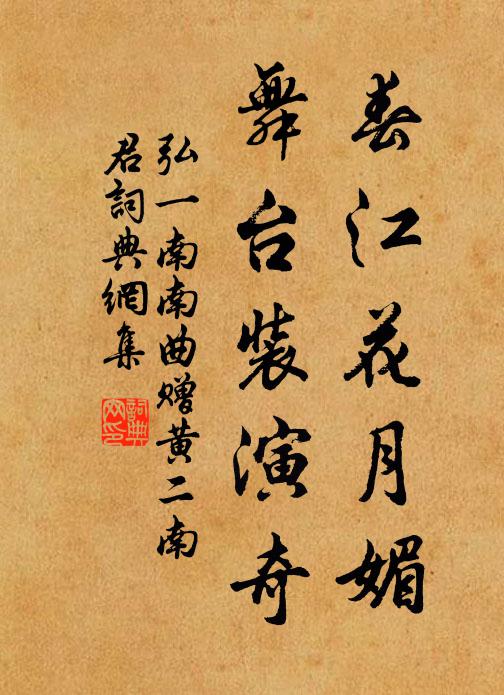 春江花月媚
舞台裝演奇
弘一南南曲赠黄二南
君詞典網集
詞典网印